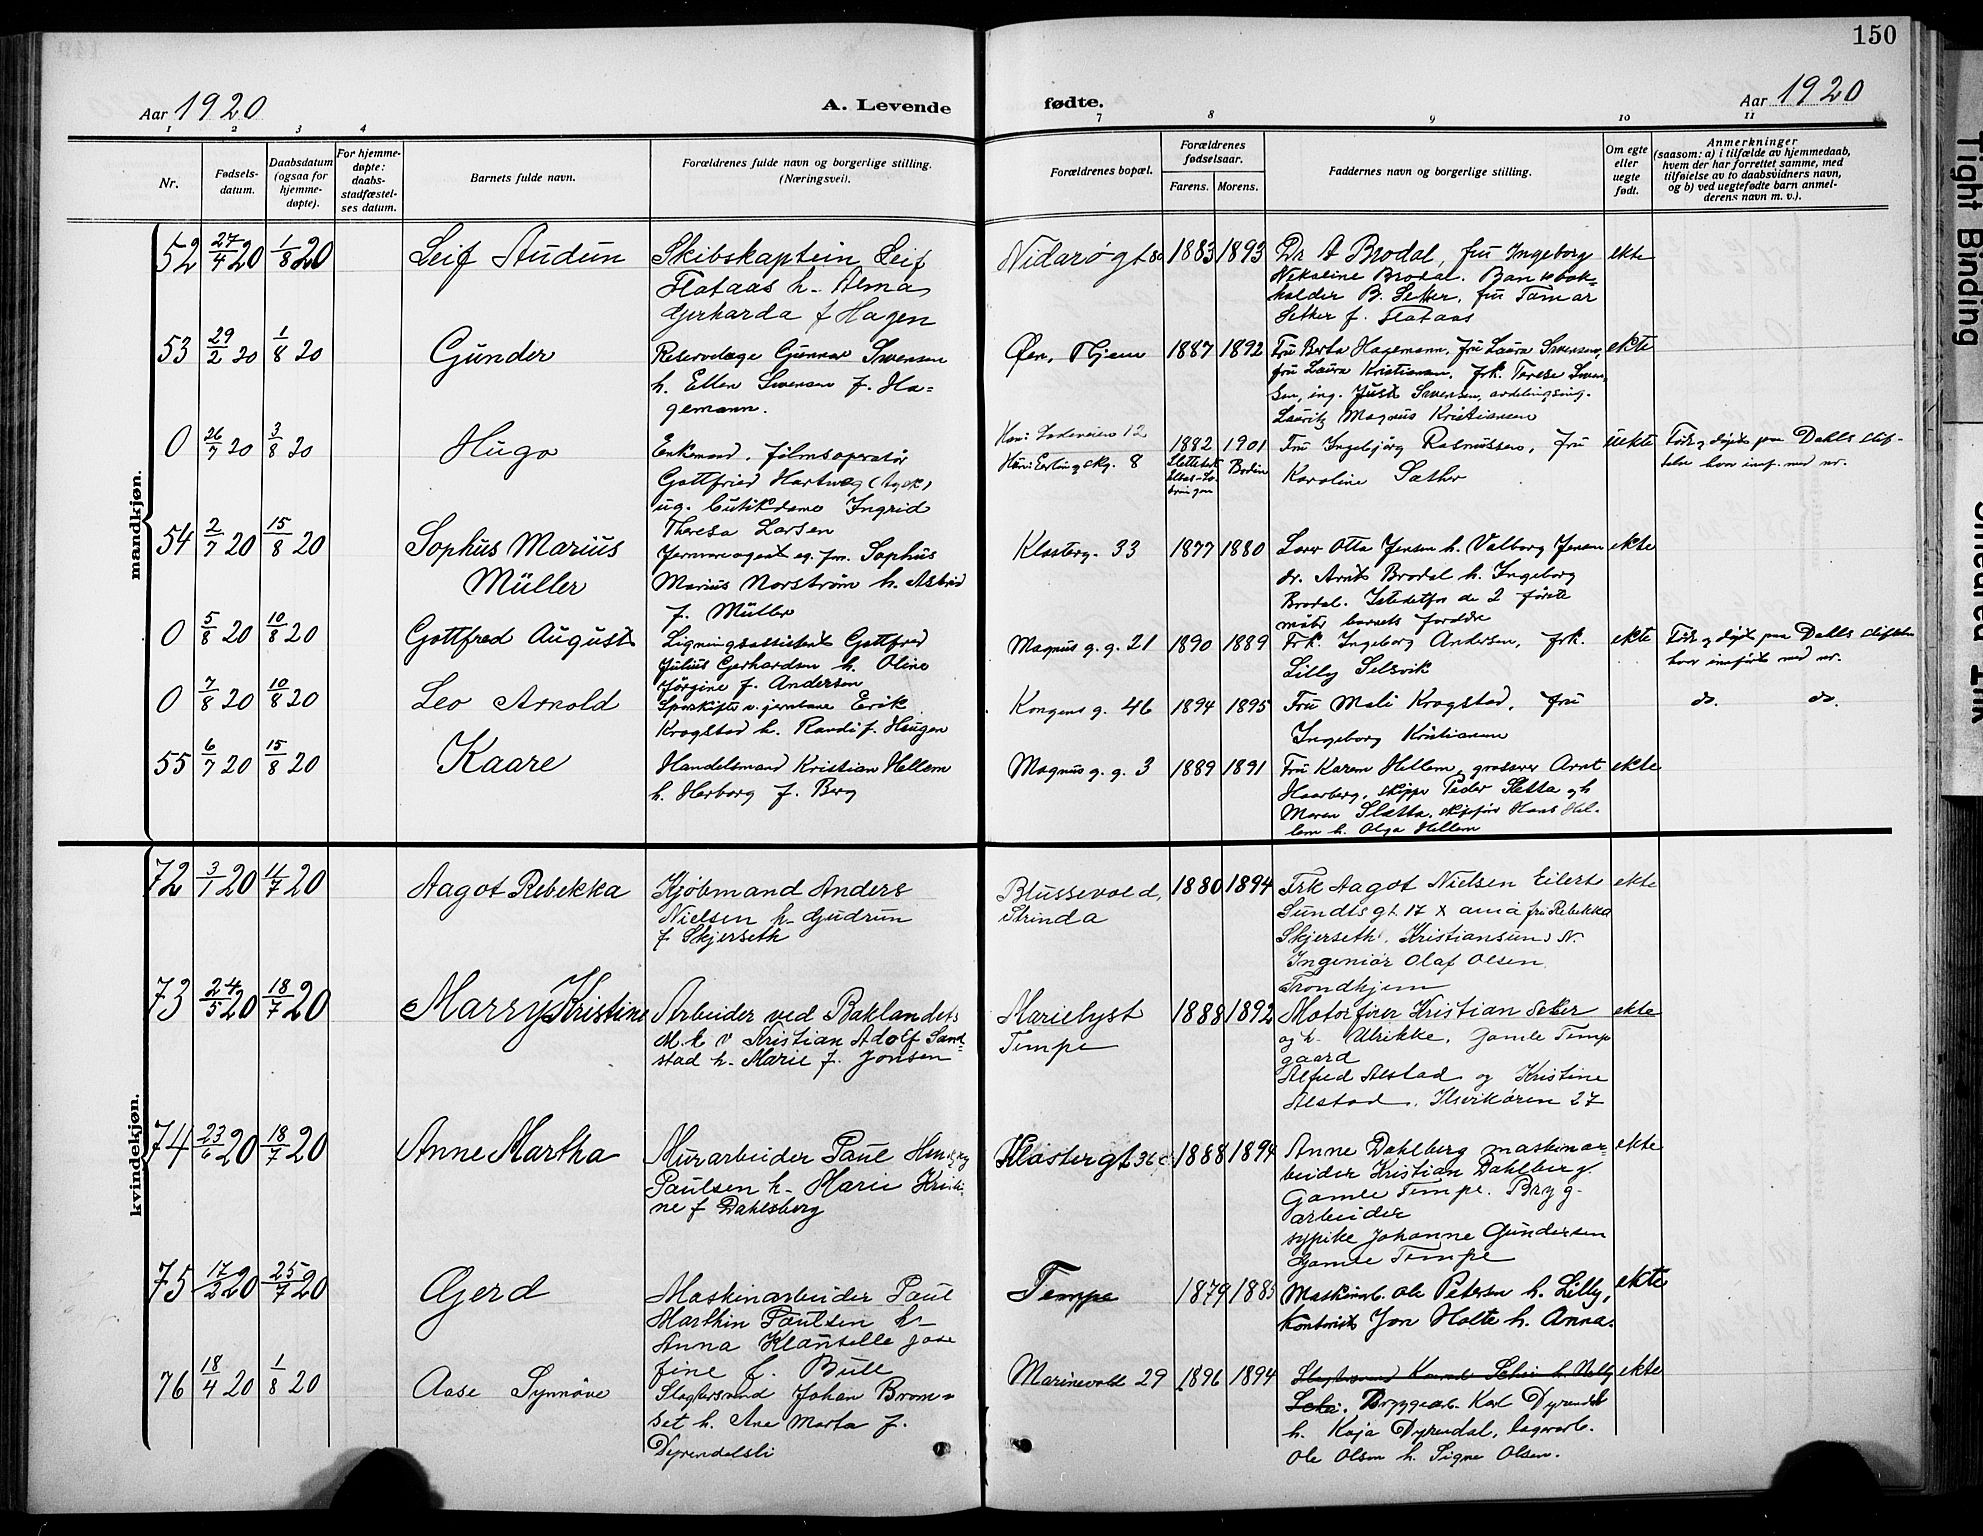 150
Aar 1920
A. Levende
fødte.
Aar 1920
1 2 3 4 7 8 9 10 11
Nr.
Fødsels-
datum.
Daabsdatum
(ogsaa for
hjemme-
døpte).
For hjemme-
døpte:
daabs-
stadfæstel-
ses datum.
Barnets fulde navn.
Forældrenes fulde navn og borgerlige stilling.
(Næringsvei).
Forældrenes bopæl.
Forældrenes
fødselsaar.
Farens. Morens.
Faddernes navn og borgerlige stilling.
Om egte
eller
uegte
født.
Anmerkninger
(saasom: a) i tilfælde av hjemmedaab,
hvem der har forrettet samme, med
tilføielse av to daabsvidners navn,
og b) ved uegtefødte barn anmel-
derens navn m. v.).
mandkjøn.
52 27/4 20 1/8 20 Leif Audun
Skibskaptein Leif
Flataas h. Alma
Gerharda f Hagen
Nidarøgt 1883 1893
Dr A Brodal, fru Ingeborg
Nikoline Brodal. Bankbok-
holder B. Setker, fru Tamar
Setker f. Flataas
ekte
53 29/2 20 1/8 20 Gunder
Reservelæge Gunnar Swensen
h. Ellen Swensen f. Ha-
gemann.
Øen, Thjem 1887 1892
Fru Berta Hagemann, fru Laura Swensen,
fru Laura Kristiansen. frk. Terese Swen-
sen, ing. Just Swensen, avdelingsing.
Lauritz Magnus Kristiansen
ekte
0 26/7 20 3/8 20 Hugo
Enkemand, filmsoperatør
Gottfried Hartweg (tysk)
ug. butikdame Ingrid
Theresa Larsen
Han: Ladeveien 12
Hun: Erling Skg. 8
1882 1901
Bodin
Fru Ingebjørg Rasmussen, fru
Karoline Sæther
uekte
Født og døpt paa Dahls stif-
telse hvor innf. med nr.
54 2/7 20 15/8 20 Sophus Marius
Müller
Jernvareagent eg. fm. Sophus
Marius Norstrøm h. Astrid
f. Müller
Klosterg. 33 1877 1880
Lærer Otto Jensen h. Valborg Jensen
dr. Arnt Brodal h. Ingeborg
Brodal. Istedetfor de 2 første
møtte barnets forældre
ekte
0 5/8 20 10/8 20 Gottfred August
Ligningsassistent Gottfred
Julius Gerhardsen h. Oline
Jørgine f. Andersen
Magnus g. g. 21 1890 1889
Frk. Ingeborg Andersen, frk.
Lilly Selsvik
ekte
Født og døpt paa Dahls stiftelse
hvor innført med nr.
0 7/8 20 10/8 20 Leo Arnold
Sporskifter v. jernbane Erik
Krogstad h. Randi f. Haugen
Kongens g. 46 1894 1895
Fru Mali Krogstad, fru
Ingeborg Kristiansen
do. do.
55 6/7 20 15/8 20 Kaare
Handelsmand Kristian Hellem
h. Herborg f. Berg
Magnus g. g. 3 1889 1891
Fru Karen Hellem, grosserer Arnt
Haarberg, skipper Peder Sletta og h
Maren Sletta, skipsfør Hans Hel-
lem h. Olga Hellem
ekte
kvindekjøn.
72 3/1 20 11/7 20 Aagot Rebekka
Kjøbmand Anders
Nielsen h- Gudrun
f Skjerseth
Blussevold,
Strinda
1880 1894
Frk Aagot Nielsen Eilert
Sundts gt. 17 x ania fru Rebekka
Skjerseth, Kristiansund N.
Ingeniør Olaf Olsen,
Trondhjem
ekte
73 24/5 20 18/7 20 Marry Kristine
Arbeider ved Baklandets
M. b v Kristian Adolf Sand-
stad h. Marie f. Jonsen
Marielyst
Tempe
1888 1892
Motorfører Kristian Seter
og h- Ulrikke, Gamle Temp
gaard
Alfred Alstad og Kristine
Alstad, Ilsvikøren 27
ekte
74 23/6 20 18/7 20 Anne Martha
Murarbeider Paul
Paulsen h- Marie Kristi-
ne f Dahlsberg
Klostergt. 36 1888 1894
Anne Dahlberg maskinar-
beider Kristian Dahlberg
Gamle Tempe. Bryg-
arbeider
sypike Johanne Gundersen
Gamle Tempe
ekte
75 17/2 20 25/7 20 Gerd
Maskinarbeider Paul
Marthin Paulsen h-
Anna Klausette Jose
fine f. Bull
Tempe 1879 1885
Maskinarb. Ole Petersen h. Lilly,
kontorist Jon Holte h. Anna.
ekte
76 18/4 20 1/8 20 Aase Synnøve
Slagtersvend Johan Brom-
set h. Ane Marta f.
Dyrendalsli
Marinevold 29 1896 1894
Bryggearb. Karl Dyrendal
h. Kaja Dyrendal, lagerarb.
Ole Olsen h. Signe Olsen.
ekte
Tight Binding